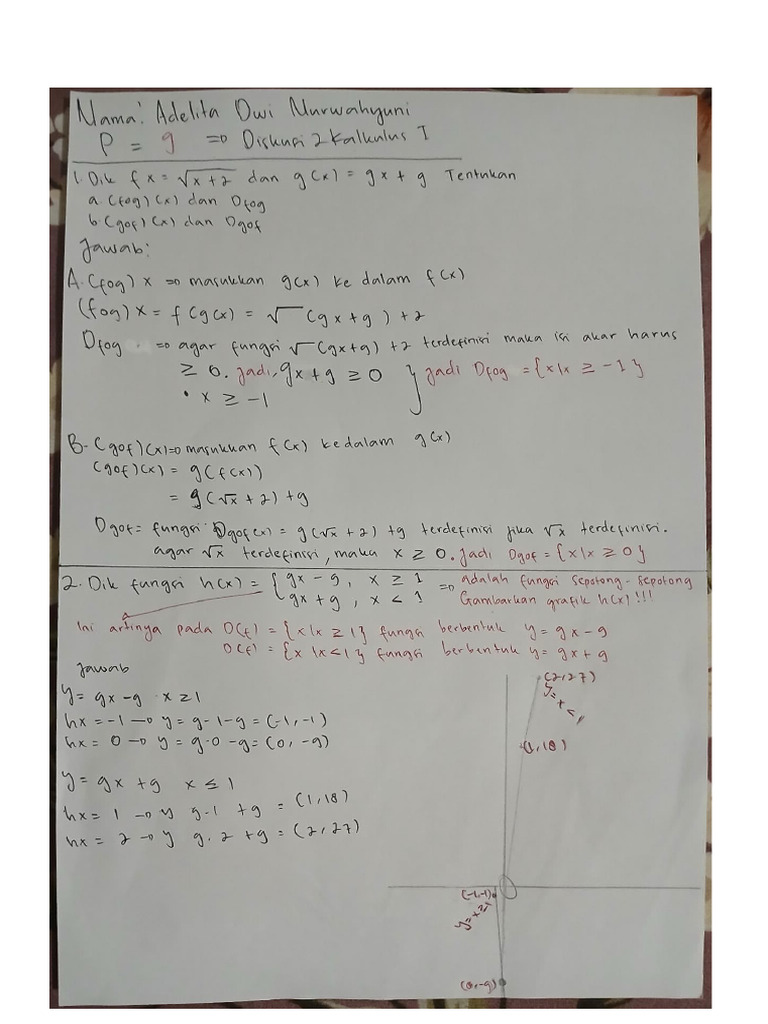 Nama: Adelita Dwi Nurwahyuni
P = 9 => Diskusi 2 Kalkulus I
1. Dik f x = √x+2 dan g(x) = 9x + 9 Tentukan
a. (fog)(x) dan Dfog
b. (gof)(x) dan Dgof
Jawab:
A. (fog) x => masukkan g(x) ke dalam f(x)
(fog) x = f(g(x) = √(9x+9) + 2
Dfog => agar fungsi √(9x+9) + 2 terdefinisi maka isi akar harus
≥ 0. jadi, 9x + 9 ≥ 0 } jadi Dfog = {x|x ≥ -1}
• x ≥ -1
B- (gof)(x) => masukkan f(x) kedalam g(x)
(gof)(x) = g(f(x))
= 9(√x + 2) + 9
Dgof = fungsi Dgof(x) = 9(√x + 2) + 9 terdefinisi jika √x terdefinisi.
agar √x terdefinisi, maka x ≥ 0. jadi Dgof = {x|x ≥ 0}
2. Dik fungsi h(x) = { 9x - 9, x ≥ 1 => adalah fungsi sepotong-sepotong
9x + 9, x < 1 Gambarkan grafik h(x)!!!
Ini artinya pada D(f) = {x|x ≥ 1} fungsi berbentuk y = 9x - 9
D(f) = {x|x < 1} fungsi berbentuk y = 9x + 9
Jawab
y = 9x - 9 x ≥ 1
hx = -1 → y = 9 - 1 - 9 = (-1, -1)
hx = 0 → y = 9 · 0 - 9 = (0, -9)
y = 9x + 9 x ≤ 1
hx = 1 → y 9 · 1 + 9 = (1, 18)
hx = 2 → y 9 . 2 + 9 = (2, 27)
(2, 27)
y = x < 1
(1, 18)
(-1, -1)
y = x ≥ 1
(0, -9)